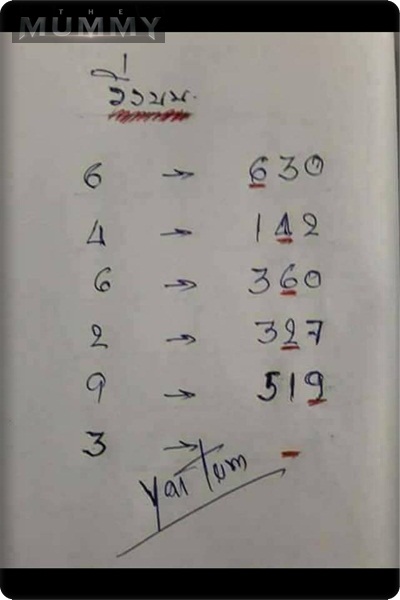 THE
MUMMY
วิ่งบน.
6 → 630
4 → 142
6 → 360
2 → 327
9 → 519
3 →